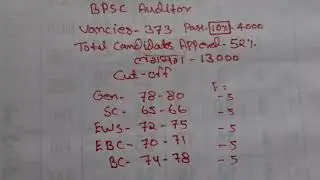 BPSC Auditor
Vancies - 373 Pass. 10x - 4000
Total Candidates Appered - 52%
लगभग - 13000
Cut-off
F:-
Gen - 78-80 -5
SC - 65-66 -5
EWS - 72-75 -5
EBC - 70-71 -5
BC - 74-78 -5